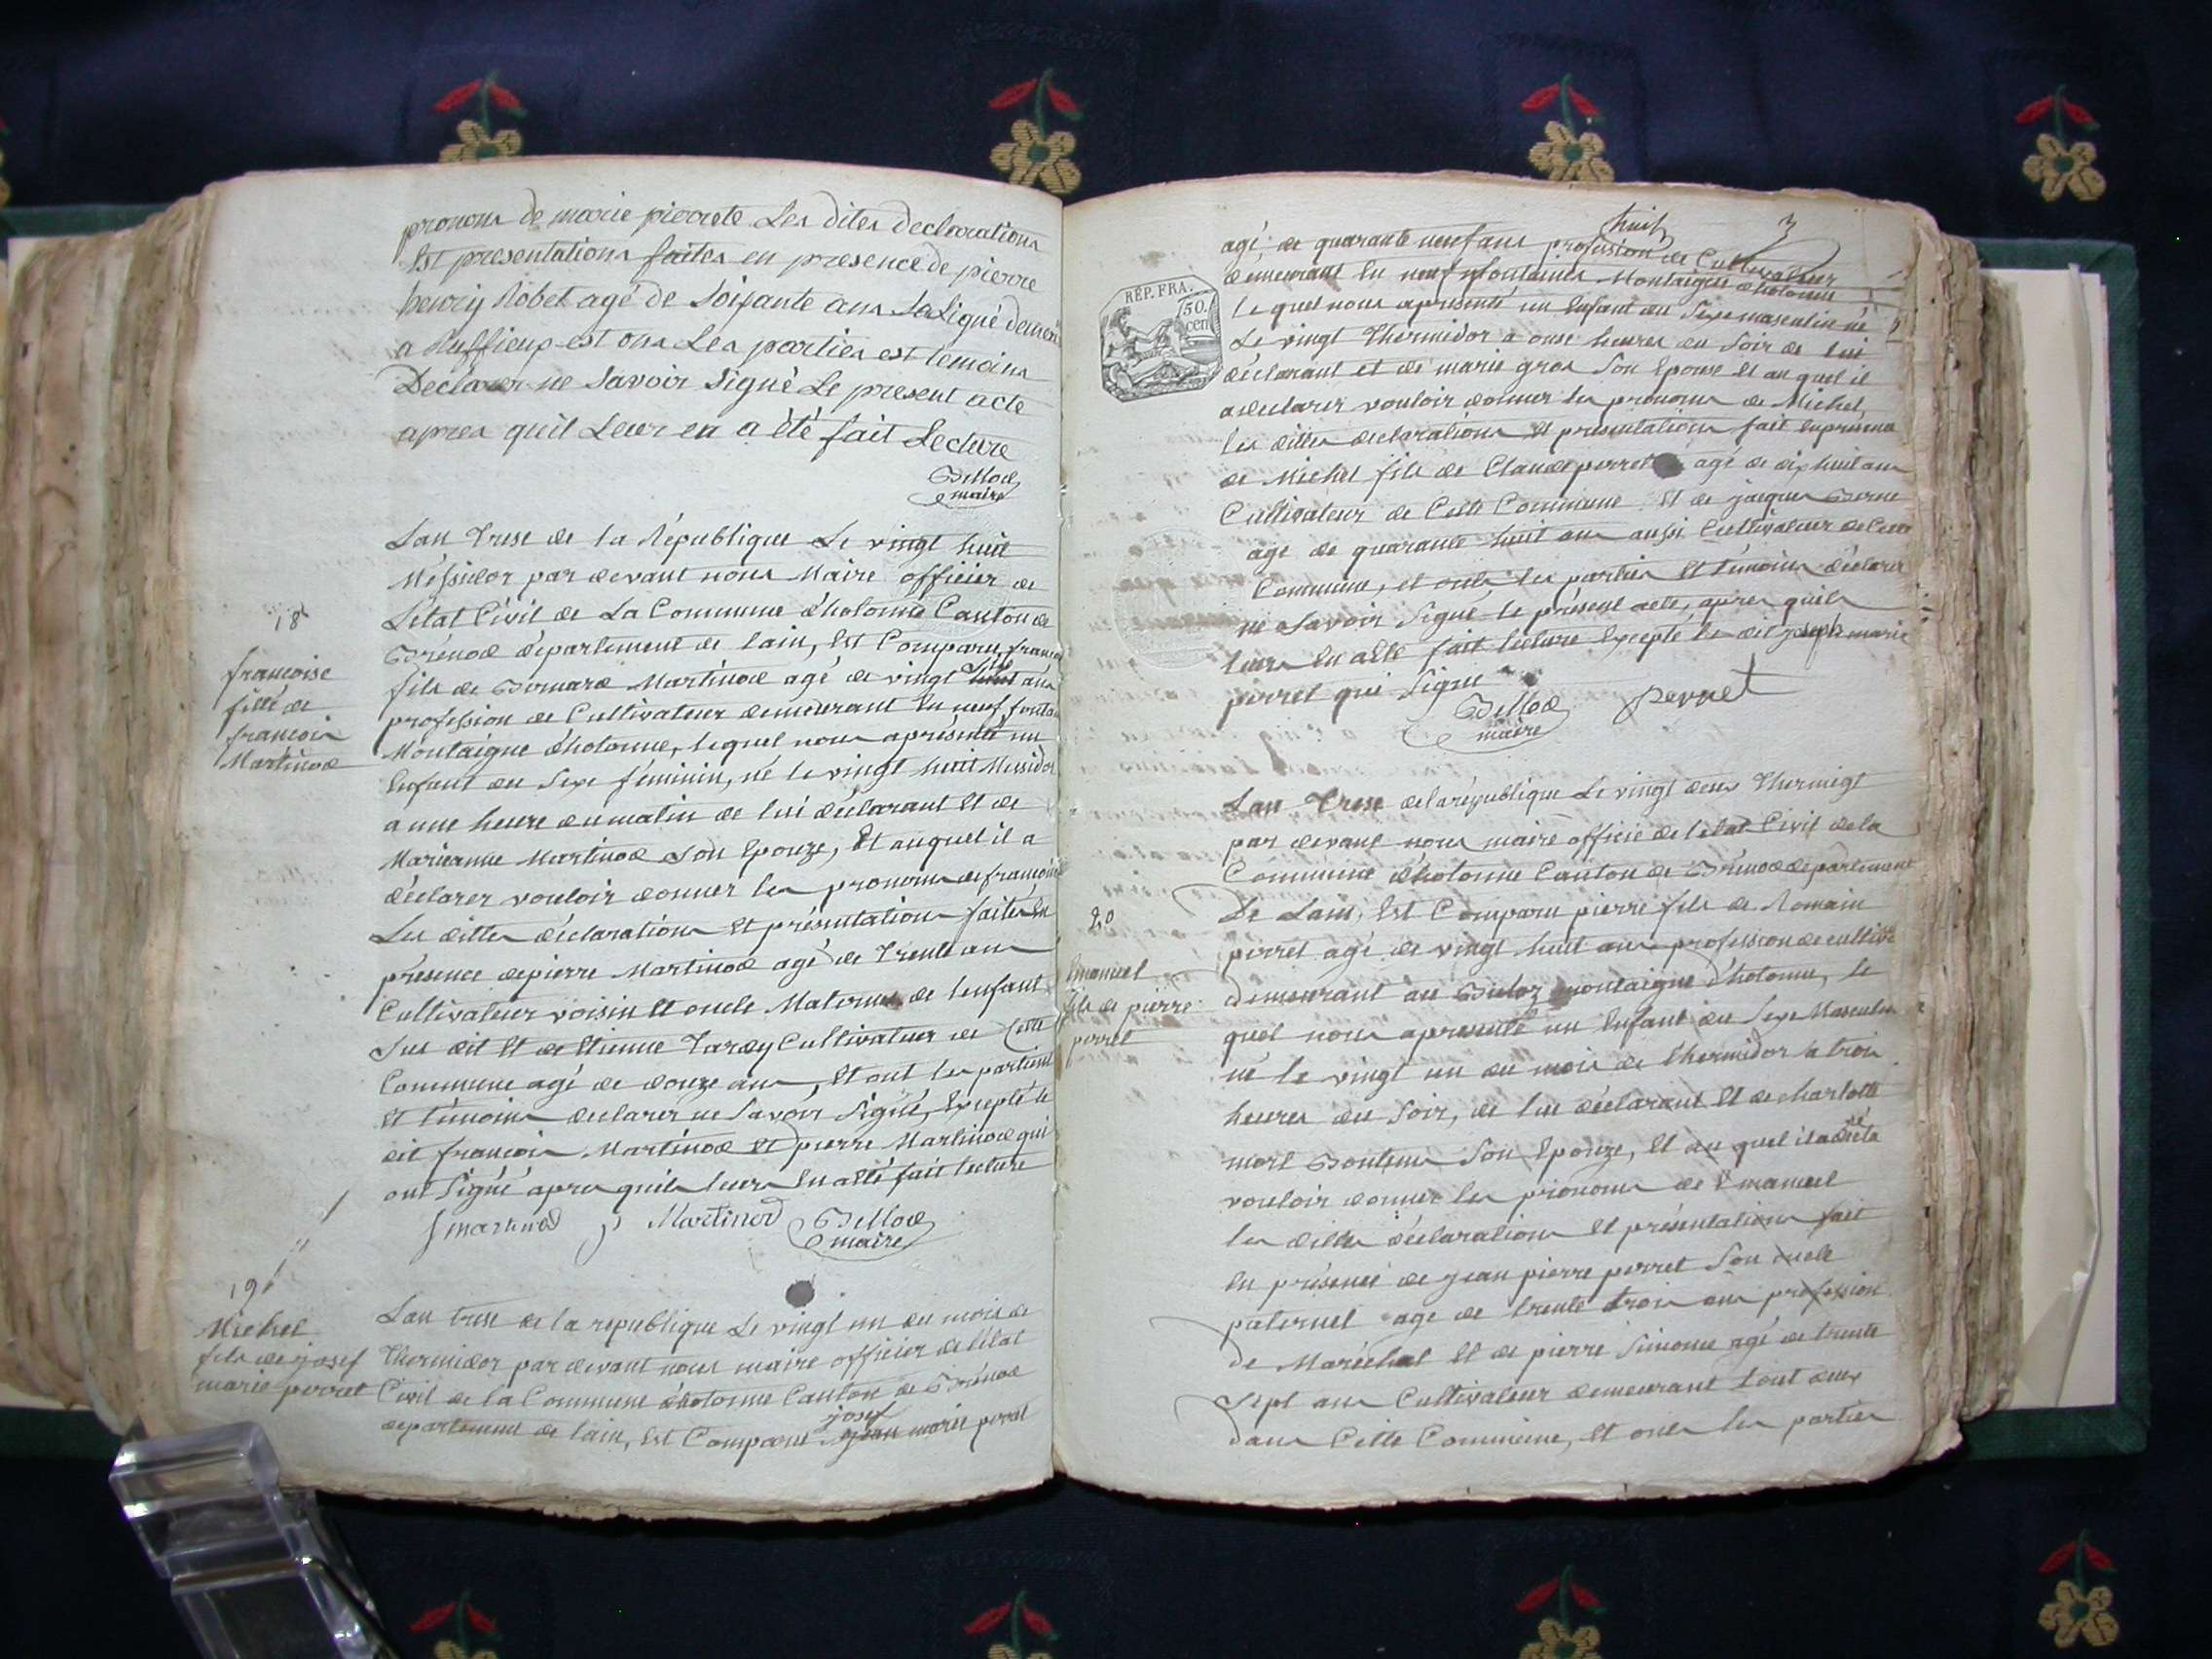 pronoms de marie pierrete Les dites declarations
Est presentations faites en presence de pierre
henrij Robet agé de Soixante ans La Ligué demeu
a Ruffieux est ons Les parties est temoins
Declarer ne Savoir Signé Le present acte
apres quil Leur en a été fait Lecture
Bellod
maire
Lan Trese de la République Le vingt huit
Méssidor par devant nous Maire officier de
Létat Civil de La Commune d'hotonne Canton de
Brénod département de lain, Est Comparu françois
fils de Bernard Martinod agé de vingt ans
profession de Cultivateur demeurant En neuf fonta
Montaigne d'hotonne, lequel nous aprésenté un
Enfant du Sexe féminin, né le vingt huit Messidor
a une heure du matin de lui déclarant Et de
Marianne Martinod Son Epouze, Et auquel il a
déclarer vouloir donner les pronoms de françoise
Les dittes déclarations Et présentations faites En
présence de pierre Martinod agé de Trente ans
Cultivateur voisin Et oncle Maternel de lenfant
Sus dit Et de Etienne Tardy Cultivateur de Cette
Commune agé de douze ans, Et ont les parties
Et témoins declarer ne Savoir Signé, Excepté le
dit françois Martinod Et pierre Martinod qui
ont Signé apres quils leurs En a Eté fait lecture
f martinod p Martinod Bellod
maire
18
francoise
fille de
francois
Martinod
19
Michel
fils de josef
marie perret
Lan trese de la republique Le vingt un du mois de
Thermidor par devant nous maire officier de l'état
Civil de la Commune d'hotonne Canton de Brénod
josef
departement de lain, Est Comparu jean marie perret
3
huit
agé de quarante neuf ans profession de Cultivateur
demeurant En neuf fontaines Montaigne d'hotonne
le quel nous apresenté un Enfant du Sexe masculin né
RÉP. FRA.
50
cen
Le vingt Thermidor a onse heures du Soir de lui
déclarant et de marie gros Son Epouse Et au quel il
adeclarer vouloir donner les pronoms de Michel,
les dittes declarations Et presentations fait Enpresence
de Michel fils de Claude perret agé de dix huit ans
Cultivateur de Cette Commune Et de jacques Borne
agé de quarante huit ans aussi Cultivateur de Cette
Commune, et onts les parties Et témoins déclarer
ne Savoir Signé le présent acte, apres quils
leurs En a Eté fait lecture Excepté le dit joseph marie
perret qui Signe
Bellod perret
maire
Lan Trese delarépublique Le vingt deux Thermigt
par devant nous maire officié de l'état Civil dela
Commune d'hotonne Canton de Brénod departement
De Lain, Est Comparu pierre fils de Romain
perret agé de vingt huit ans profession de cultiva
demeurant au montaigne d'hotonne, le
quel nous apresenté un Enfant du Sexe Masculin
né le vingt un du mois de thermidor a trois
heures du Soir, de lui déclarant Et de charlotte
mort Bontems Son Epouze, Et au quel il a déclaré
vouloir donner les pronoms de Emanuel
les dittes déclarations Et présentations fait
En présence de jean pierre perret Son oncle
paternel age de trente trois ans profession
de Maréchal Et de pierre Simonne agé de trente
Sept ans Cultivateur demeurant tout deux
dans Cette Commune, Et onts les parties
20
Emanuel
fils de pierre
perret